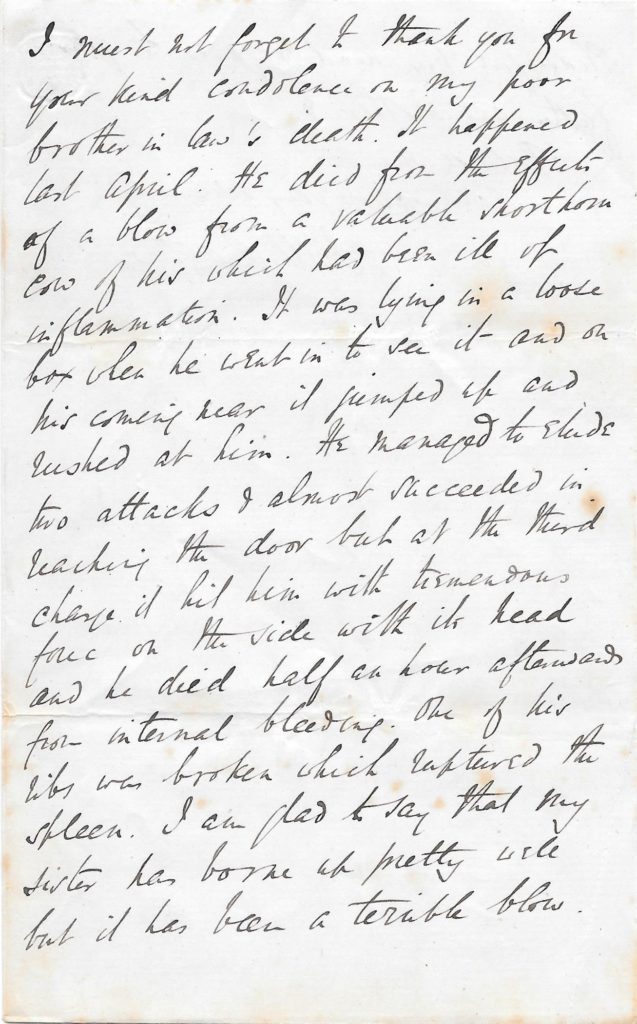 I must not forget to thank you for
your kind condolence on my poor
brother in law's death. It happened
last April. He died from the effects
of a blow from a valuable shorthorn
cow of his which had been ill of
inflammation. It was lying in a loose
box when he went in to see it and on
his coming near it jumped up and
rushed at him. He managed to elude
two attacks & almost succeeded in
reaching the door but at the third
charge it hit him with tremendous
force on the side with its head
and he died half an hour afterwards
from internal bleeding. One of his
ribs was broken which ruptured the
spleen. I am glad to say that my
sister has borne up pretty well
but it has been a terrible blow.